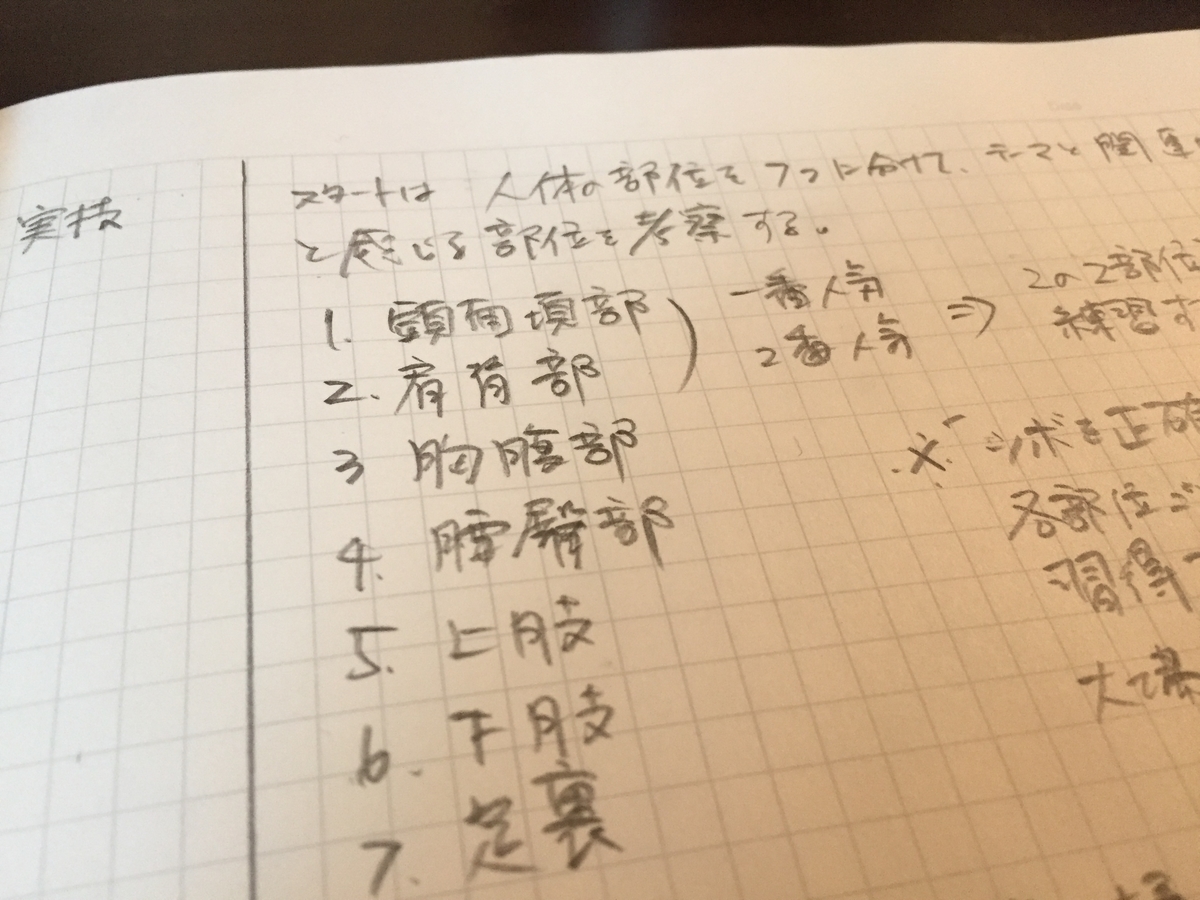 実技
スタートは 人体の部位を7つに分けて、テーマと関連
と感じる部位を考察する。
1. 頭面項部 一番人気 ⇒ 2の2部位
2. 肩背部 2番人気 練習す
3 胸腹部
※ ツボを正確
4. 腰臀部
各部位ご
5. 上肢
習得
6. 下肢
大
7. 足裏